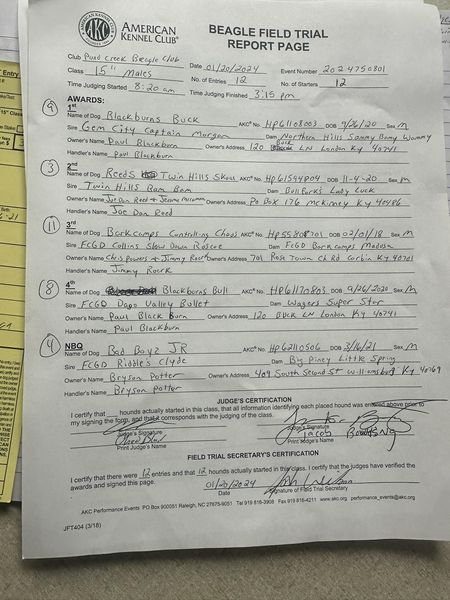 AKC AMERICAN KENNEL CLUB®
BEAGLE FIELD TRIAL REPORT PAGE
Club Pond Creek Beagle Club Date 01/20/2024 Event Number 2024750801
Class 15" Males No. of Entries 12 No. of Starters 12
Time Judging Started 8:20 am Time Judging Finished 3:15 pm
AWARDS:
9 1st
Name of Dog Blackburns Buck AKC® No. HP61108003 DOB 9/26/20 Sex M
Sire Gem City Captain Morgan Dam Northern Hills Sammy Bamy
Owner's Name Paul Blackburn Owner's Address 120 Buck LN London Ky 40741
Handler's Name Paul Blackburn
3 2nd
Name of Dog Reeds Twin Hills AKC® No. HP61544904 DOB 11-4-20 Sex M
Sire Twin Hills Bam Bam Dam Bell Parks Lady Luck
Owner's Name Joe Don Reed + Owner's Address Po Box 176 McKinney Ky 40486
Handler's Name Joe Don Reed
11 3rd
Name of Dog Barkcamps Controlling Chaos AKC® No. HP55808701 DOB 02/01/18 Sex M
Sire FCGD Collins Slow Down Roscoe Dam FCGD Barkcamps Madusa
Owner's Name Chris Powers + Jimmy Rourk Owner's Address 701 Rose Town Ch Rd Corbin Ky 40701
Handler's Name Jimmy Rourk
8 4th
Name of Dog Blackburns Bull AKC® No. HP61170803 DOB 9/26/2020 Sex M
Sire FCGD Dogo Valley Bullet Dam Wagers Super Star
Owner's Name Paul Black Burn Owner's Address 120 Buck LN London Ky 40741
Handler's Name Paul Blackburn
4 NBQ
Name of Dog Bad Boyz JR AKC® No. HP62110506 DOB 3/16/21 Sex M
Sire FCGD Riddle's Clyde Dam Big Piney Little Spring
Owner's Name Bryson Potter Owner's Address 409 South Second St Williamsburg Ky 40769
Handler's Name Bryson Potter
JUDGE'S CERTIFICATION
I certify that hounds actually started in this class, that all information identifying each placed hound was entered above prior to
my signing the form, and that it corresponds with the judging of the class.
Judge's Signature Judge's Signature
Jacob
Print Judge's Name Print Judge's Name
FIELD TRIAL SECRETARY'S CERTIFICATION
I certify that there were 12 entries and that 12 hounds actually started in this class. I certify that the judges have verified the
awards and signed this page. 01/20/2024
Date Signature of Field Trial Secretary
AKC Performance Events PO Box 900051 Raleigh, NC 27675-9051 Tel 919 816-3908 Fax 919 816-4211 www.akc.org performance_events@akc.org
JFT404 (3/18)